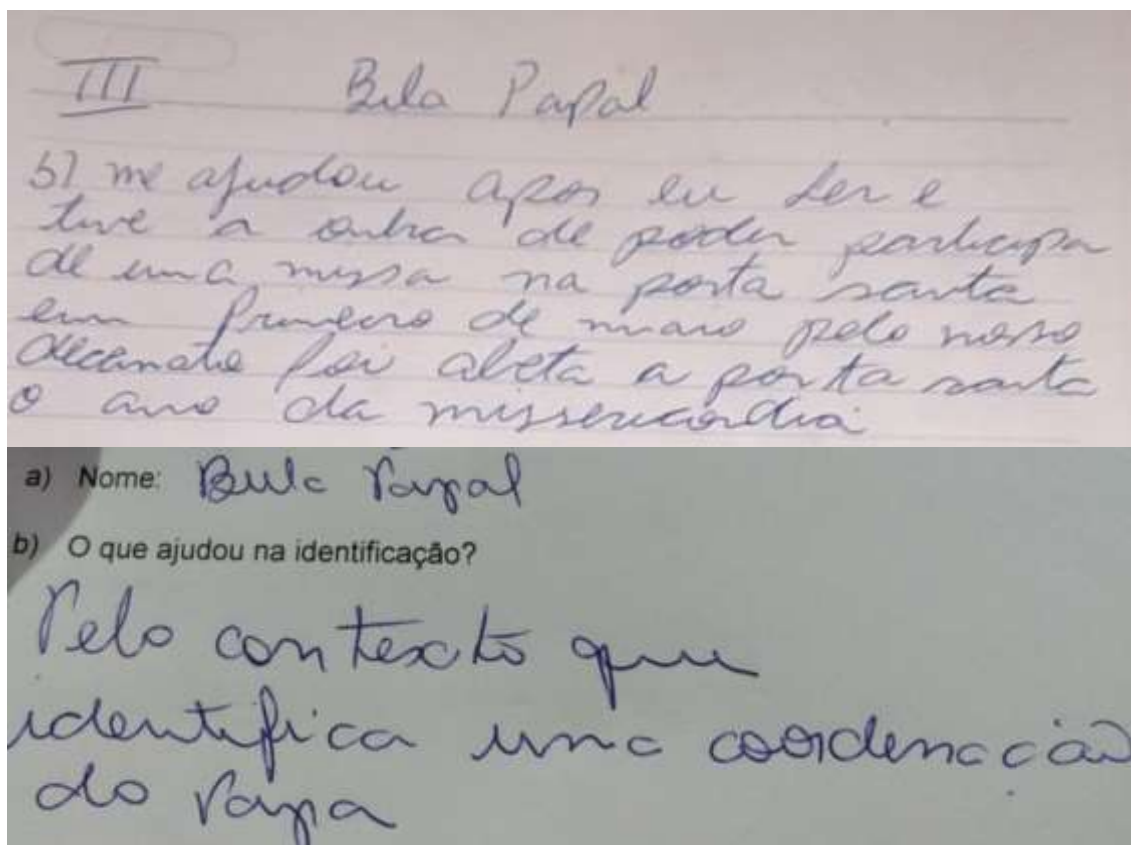 III Bula Papal
b) me ajudou apos eu ler e
tive a outra de poder participa
de uma missa na porta santa
em Primeiro de maio pelo nosso
decanato foi abeta a porta santa
o ano da missericordia
a) Nome: Bula Papal
b) O que ajudou na identificação?
Pelo contexto que
identifica uma coordenação
do Papa